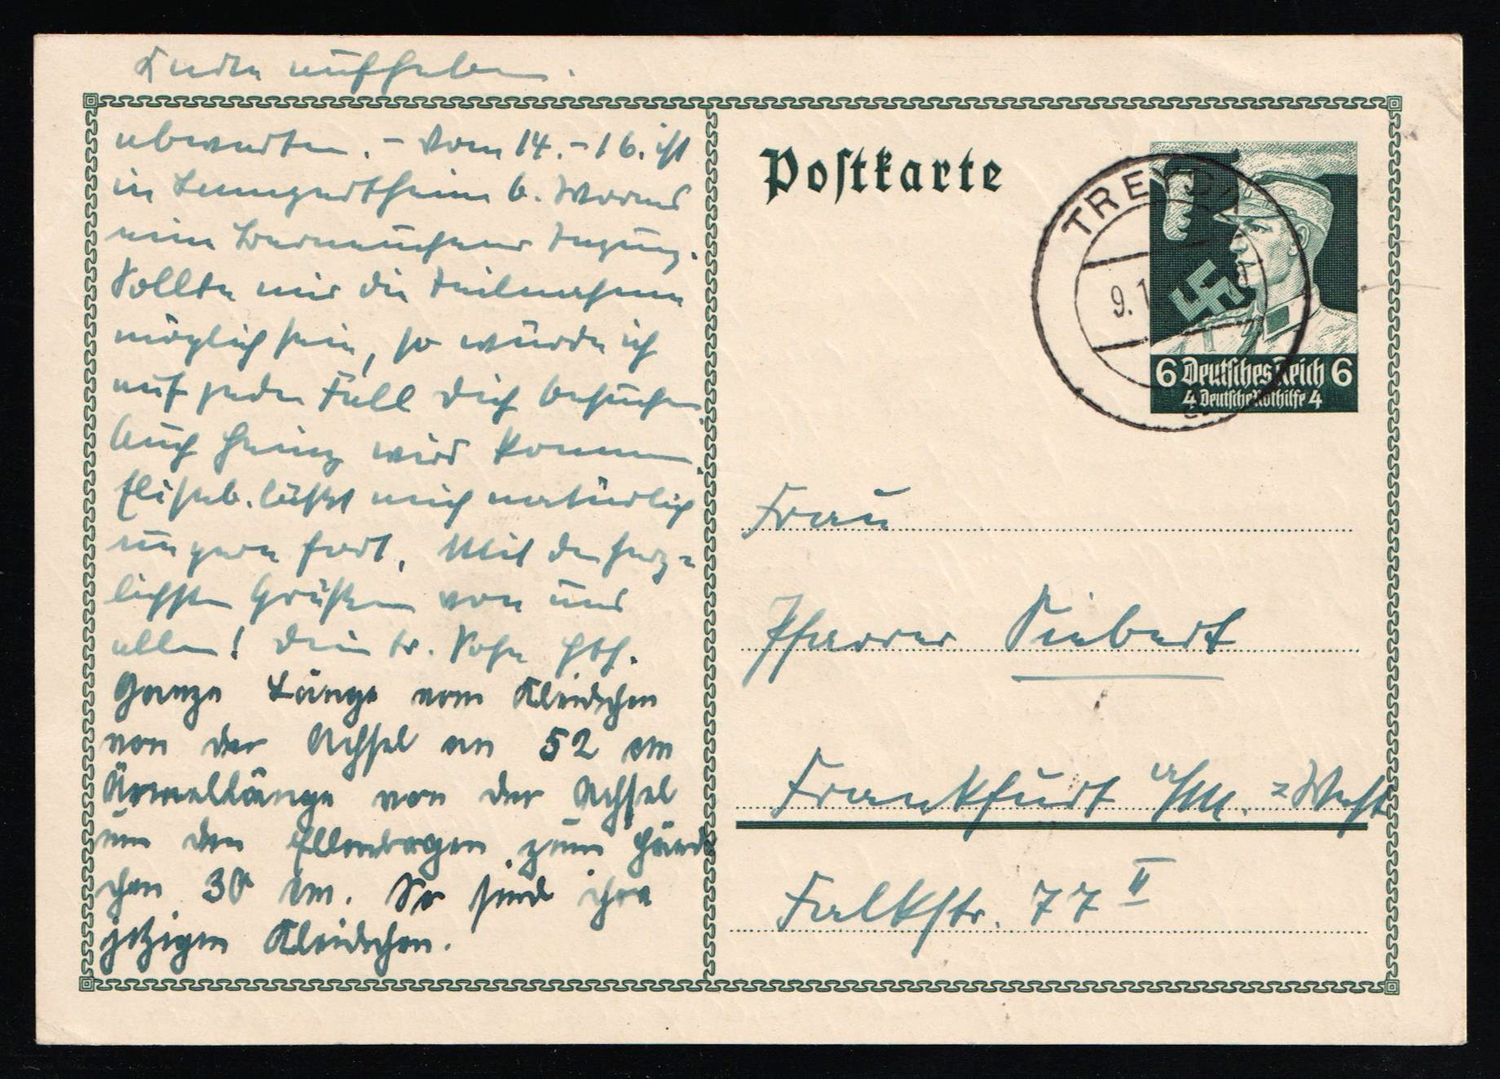 aufheben.
abwarten. – Vom 14.–16. ist
in b. Worms
eine Berneuchener Tagung.
Sollte mir die Teilnahme
möglich sein, so würde ich
auf jeden Fall Dich besuchen.
Auch Heinz wird kommen.
Elisab. läßt mich natürlich
ungern fort. Mit den herz-
lichsten Grüßen von uns
allen! Dein tr. Sohn
Ganze Länge vom Kleidchen
von der Achsel an 52 cm
Ärmellänge von der Achsel
um den Ellenbogen zum Händ-
chen 30 cm. So sind ihre
jetzigen Kleidchen.
Postkarte
TREYSA
9.1
6 Deutsches Reich 6
4 Deutsche Nothilfe 4
Frau
Pfarrer Siebert
Frankfurt a/M. =West
Falkstr. 77 II